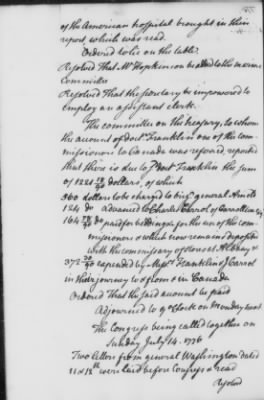 of the American hospital brought in their
report which was read.
Ordered to lie on the table.
Resolved That Mr Hopkinson be added to the marine
Committee
Resolved That the secretary be impowered to
employ an assistant clerk.
The committee on the treasury, to whom
the account of doctr Franklin one of the com-
missioners to Canada was referred, reported
that there is due to doct Franklin the sum
of 1221 dollars, of which
560 dollars to be charged to brig general Arnold
124 do advanced to Charles Carrol of Carrollton Esq
164 do paid for beddings for the use of the com
missioners & which now remains deposited
with the commissary of stores at Albany &
372 expended by Messrs Franklin & Carrol
in their journey to & from & in Canada
Ordered That the said account be paid
Adjourned to 9 oClock on monday next
The Congress being called together on
Sunday July 14. 1776
Two letters from general Washington dated
11 & 12th were laid before Congress & read
Resolved